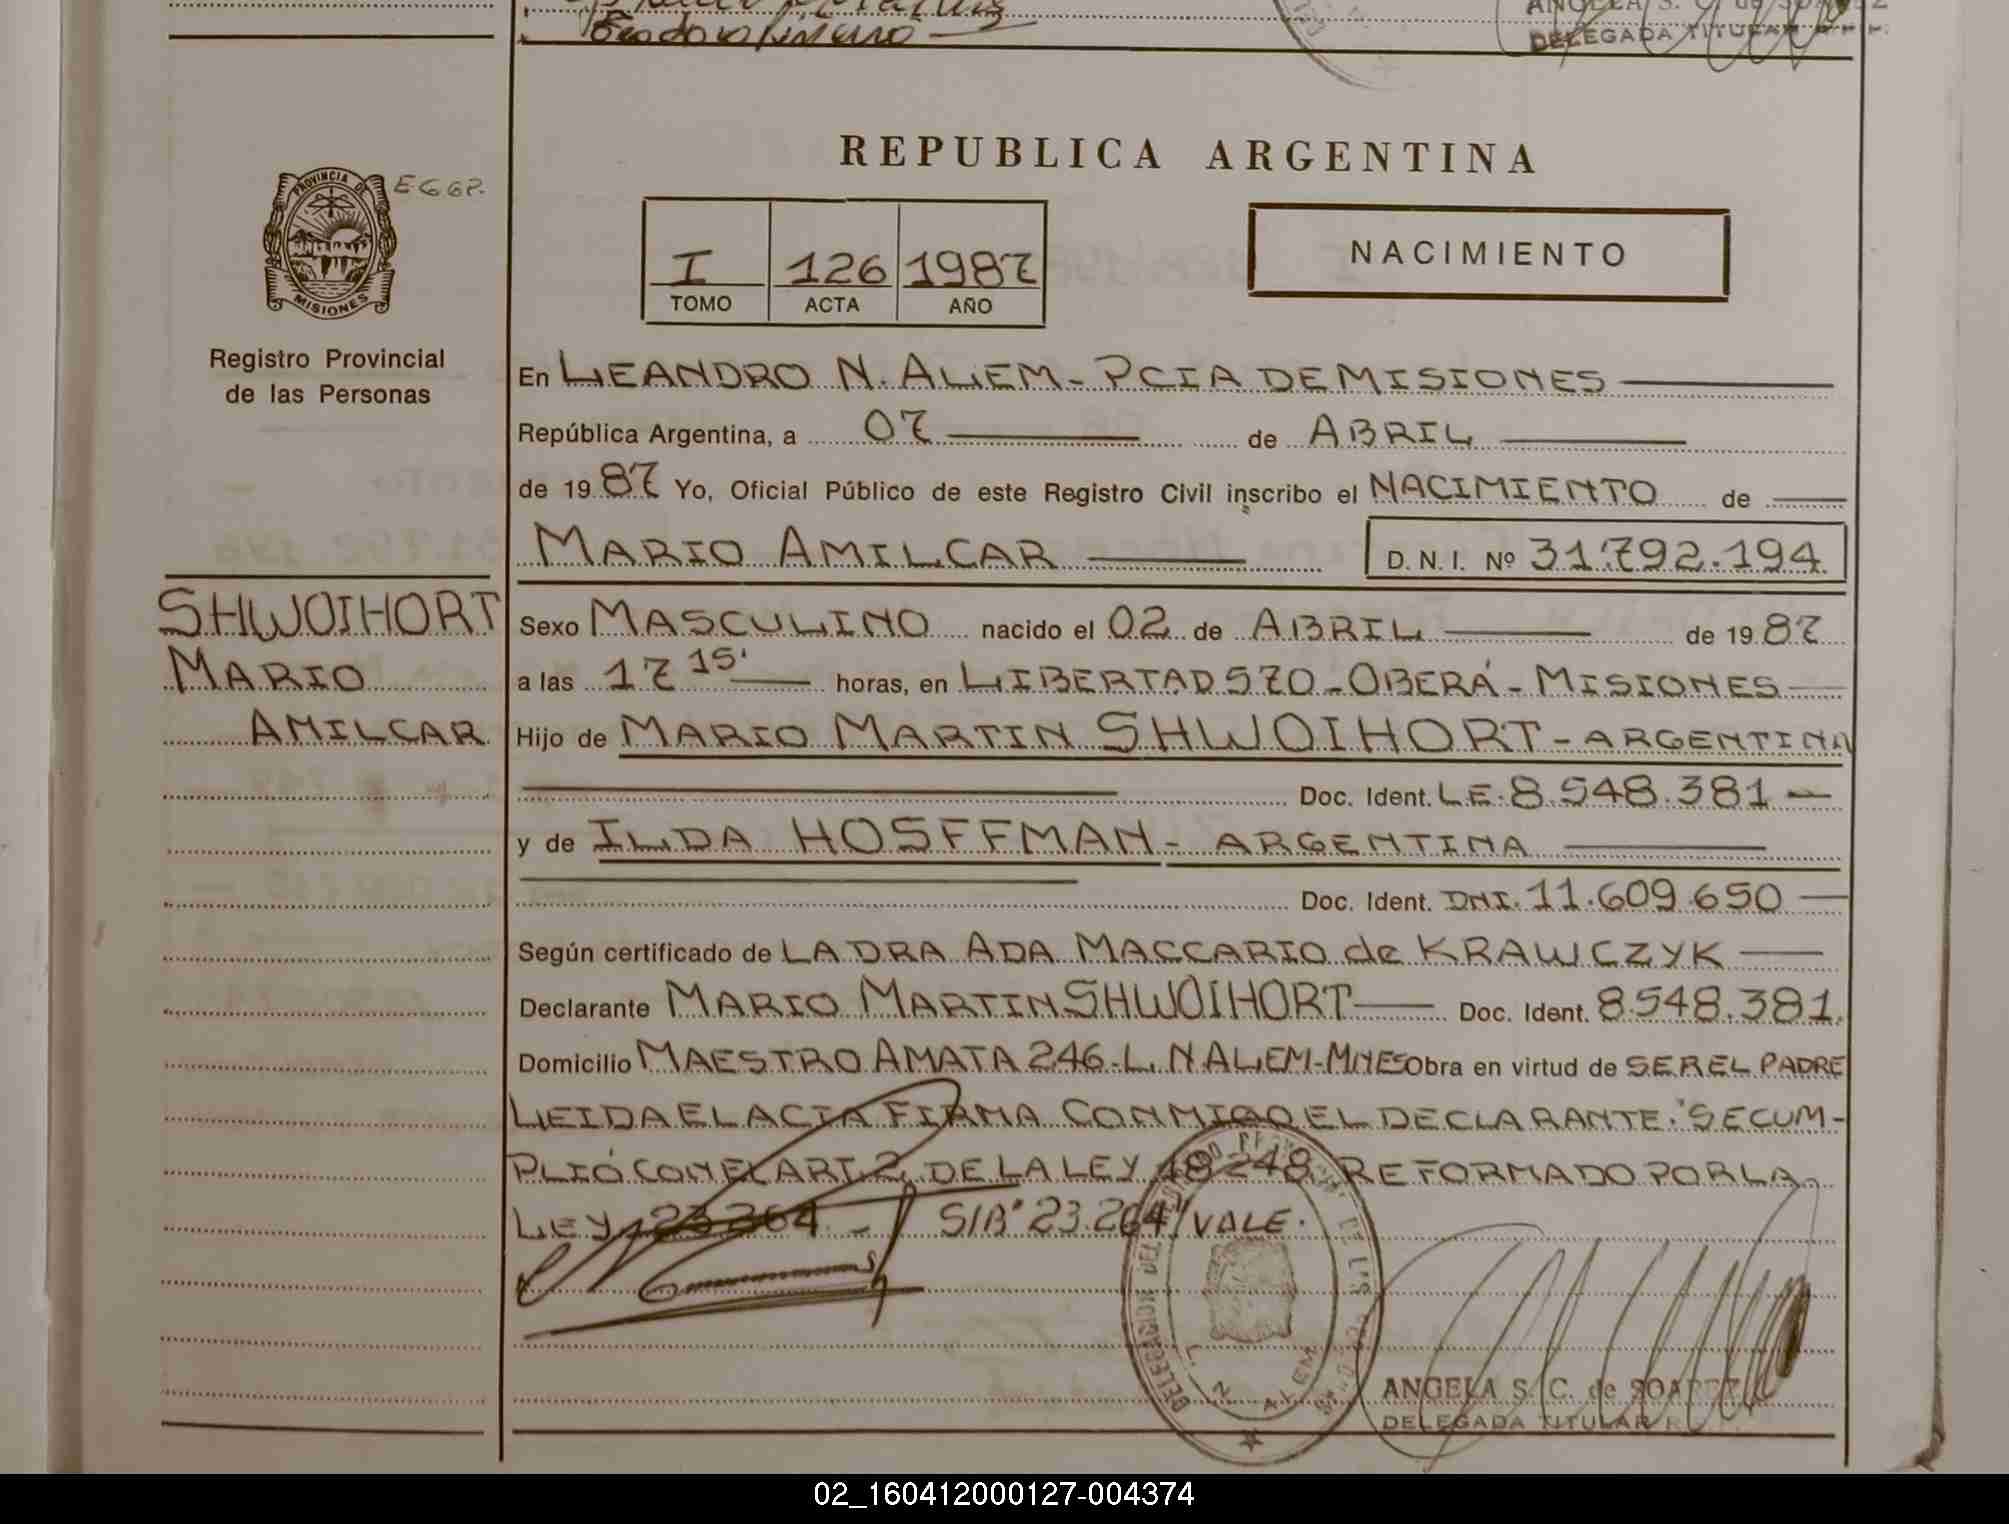 Teodoro Piñeiro
ANGELA S. C. de SOAREZ
DELEGADA TITULAR R.P.P.
REPUBLICA ARGENTINA
PROVINCIA DE
MISIONES
E-G.GP.
I 126 1987
TOMO ACTA AÑO
NACIMIENTO
Registro Provincial
de las Personas
En LEANDRO N. ALEM - PCIA DE MISIONES
República Argentina, a 07 de ABRIL
de 19 87 Yo, Oficial Público de este Registro Civil inscribo el NACIMIENTO de
MARIO AMILCAR D. N. I. Nº 31.792.194
SHWOIHORT
MARIO
AMILCAR
Sexo MASCULINO nacido el 02 de ABRIL de 19 87
a las 17 15' horas, en LIBERTAD 570 - OBERÁ - MISIONES
Hijo de MARIO MARTIN SHWOIHORT - ARGENTINA
Doc. Ident. L.E. 8.548.381
y de ILDA HOSFFMAN - ARGENTINA
Doc. Ident. DNI. 11.609.650
Según certificado de LA DRA ADA MACCARIO de KRAWCZYK
Declarante MARIO MARTIN SHWOIHORT Doc. Ident. 8.548.381.
Domicilio MAESTRO AMATA 246 - L. N ALEM - MNES Obra en virtud de SER EL PADRE
LEIDA EL ACTA FIRMA CONMIGO EL DECLARANTE. SE CUM-
PLIÓ CON EL ART. 2 DE LA LEY 18.248 REFORMADO POR LA
LEY 23264. - S/B' 23.264 / VALE.
DELEGACION DEL REGISTRO PROVINCIAL DE LAS
L. N. ALEM
ANGELA S. C. de SOAREZ
DELEGADA TITULAR R.
02_160412000127-004374